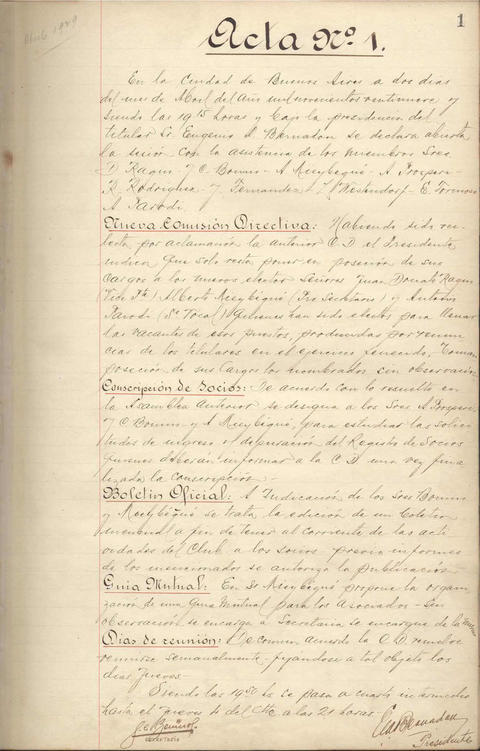 1
Abril 1929
Acta Nº 1.
En la Ciudad de Buenos Aires a dos dias
del mes de Abril del Año mil novecientos veintinueve y
siendo las 19 15 horas y bajo la presidencia del
titular Sr Eugenio A Bernadou se declara abierta
la sesión con la asistencia de los miembros Sres
D Ragui - J C - A - A Prospero -
R. Rodriguez - J Fernandez - Westendorf - E. Tormoso
A Parodi.
Nueva Comisión Directiva: Habiendo sido ree-
lecta por aclamación la anterior C.D. el Presidente
indica que solo resta poner en posesión de sus
cargos a los nuevos electos Señores Juan Donato Ragui
(Vice Pte) Alberto (Pro Secretario) y Antonio
Parodi (Vocal) quienes han sido electos para llenar
las vacantes de esos puestos, producidas por renun
cias de los titulares en el ejercicio fenecido. Toman
posesión de sus cargos los nombrados sin observación
Conscripción de Socios: De acuerdo con lo resuelto en
la Asamblea Anterior se designa a los Sres A Prospero
J C y A para estudiar las solici
tudes de ingreso y depuración del Registro de Socios
quienes deberán informar a la C D una vez fina
lizada la conscripción -
Boletin Oficial: A Indicación de los Sres
y se trata la edición de un Boletin
mensual a fin de tener al corriente de las acti
vidades del Club a los socios previo informes
de los mencionados se autoriza la publicación
Guia Mutual: El Sr propone la organi
zación de una Guia Mutual para los Asociados - Sin
observación se encarga a Secretaria se encargue de la misma
Dias de reunión: De comun acuerdo la C D resuelve
reunirse semanalmente - fijandose a tal objeto los
dias Jueves -
Siendo las 19 50 hs se pasa a cuarto intermedio
hasta el jueves 4 del Cte a las 21 horas -
Secretario
Presidente